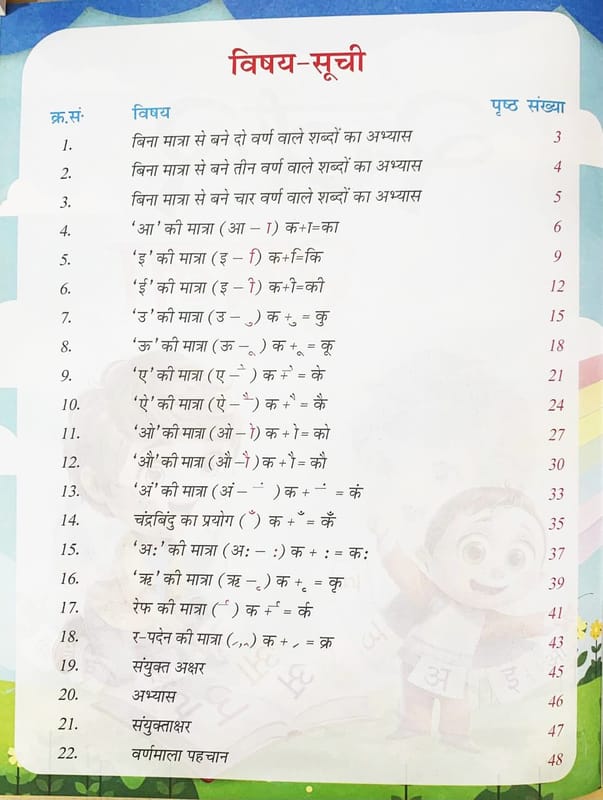 विषय-सूची
क्र.सं. विषय पृष्ठ संख्या
1. बिना मात्रा से बने दो वर्ण वाले शब्दों का अभ्यास 3
2. बिना मात्रा से बने तीन वर्ण वाले शब्दों का अभ्यास 4
3. बिना मात्रा से बने चार वर्ण वाले शब्दों का अभ्यास 5
4. ‘आ’ की मात्रा (आ – ा) क+ा=का 6
5. ‘इ’ की मात्रा (इ – ि) क+ि=कि 9
6. ‘ई’ की मात्रा (इ – ी) क+ी=की 12
7. ‘उ’ की मात्रा (उ – ु) क + ु = कु 15
8. ‘ऊ’ की मात्रा (ऊ – ू) क + ू = कू 18
9. ‘ए’ की मात्रा (ए – े) क + े = के 21
10. ‘ऐ’ की मात्रा (ऐ – ै) क + ै = कै 24
11. ‘ओ’ की मात्रा (ओ – ो) क + ो = को 27
12. ‘औ’ की मात्रा (औ – ौ) क + ौ = कौ 30
13. ‘अं’ की मात्रा (अं – ं) क + ं = कं 33
14. चंद्रबिंदु का प्रयोग (ँ) क + ँ = कँ 35
15. ‘अः’ की मात्रा (अः – :) क + : = कः 37
16. ‘ऋ’ की मात्रा (ऋ – ृ) क + ृ = कृ 39
17. रेफ की मात्रा (र्) क + र् = र्क 41
18. र-पदेन की मात्रा (्र,्र) क + ्र = क्र 43
19. संयुक्त अक्षर 45
20. अभ्यास 46
21. संयुक्ताक्षर 47
22. वर्णमाला पहचान 48
अ इ